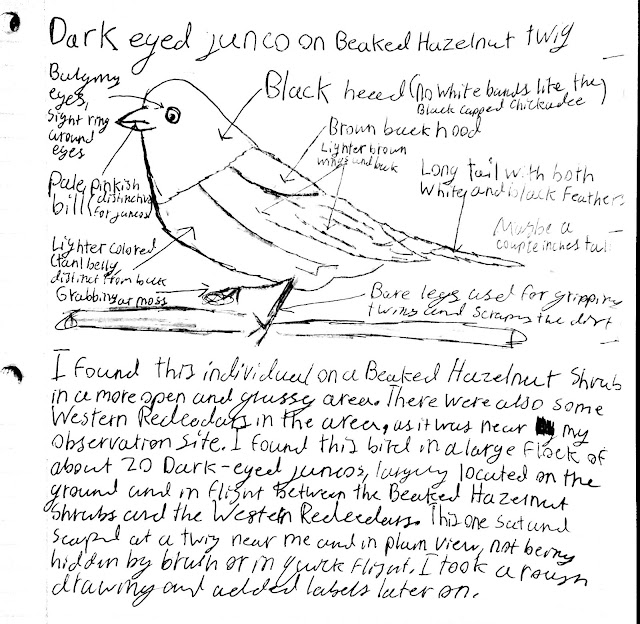 Dark eyed junco on Beaked Hazelnut twig
Bulging
eyes,
slight ring
around
eyes
Black head (no white bands like the)
Black capped Chickadee
Brown back hood
Lighter brown
wings and back
Long tail with both
white and black Feathers
Maybe a
couple inches tall
Pale pinkish
bill (distinctive
for juncos)
Lighter colored
(tan) belly
distinct from back
Grabbing
or moss
Bare legs used for gripping
twigs and scraping the dirt
I found this individual on a Beaked Hazelnut Shrub
in a more open and grassy area. There were also some
Western Redcedars in the area, as it was near my
observation site. I found this bird in a large flock of
about 20 Dark-eyed juncos, largely located on the
ground and in flight between the Beaked Hazelnut
shrubs and the Western Redcedars. This one sat and
at a twig near me and in plain view, not being
hidden by brush or in quick flight. I took a rough
drawing and added labels later on.